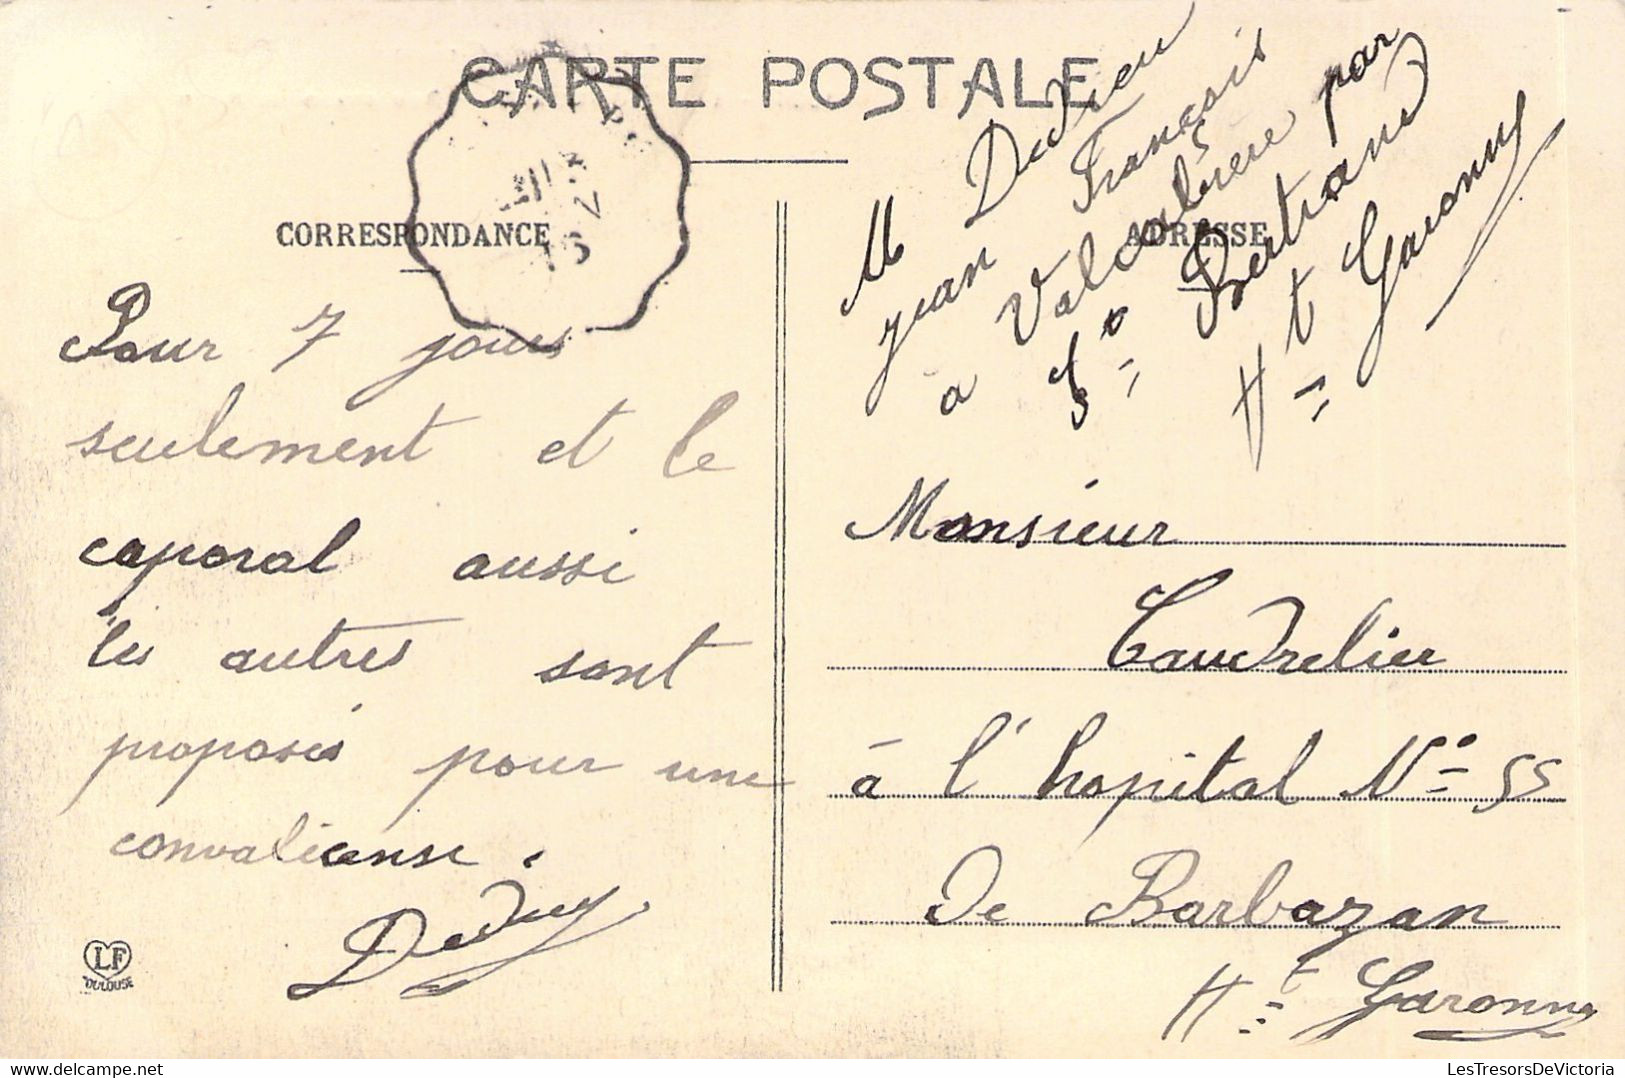 CARTE POSTALE
CORRESPONDANCE
ADRESSE
M Dedieu
jean François
a Valcabrère par
St Bertrand
Hte Garonne
Pour 7 jours
seulement et le
caporal aussi
les autres sont
proposés pour une
convalicense.
Dedieu
LF
TOULOUSE
Monsieur
Caudrelier
à l'hopital No 55
De Barbazan
Hte Garonne
LesTresorsDeVictoria